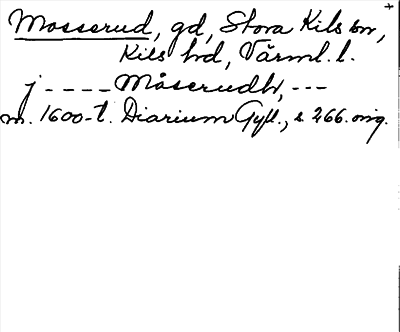 +
Mosserud, gd, Stora Kils sn,
Kils hd, Värml. l.
j ---- Måserudh, ---
m. 1600-t. Diarium Gyll., s. 266. orig.